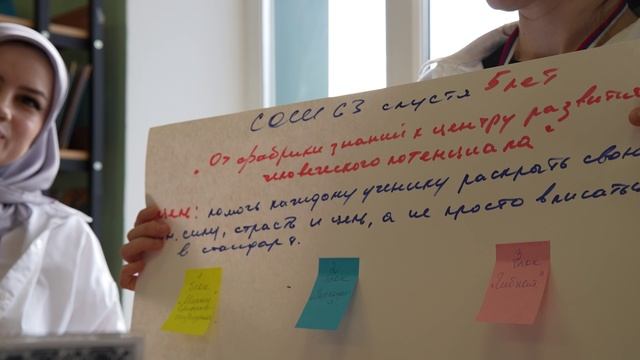 СОШ 63 спустя 5 лет
"От фабрики знаний к центру развития
человеческого потенциала"
Цель: помочь каждому ученику раскрыть свою
силу, страсть и цель, а не просто вписать
в стандарт.
1
блок
2
блок
3
блок
"Гибкий"